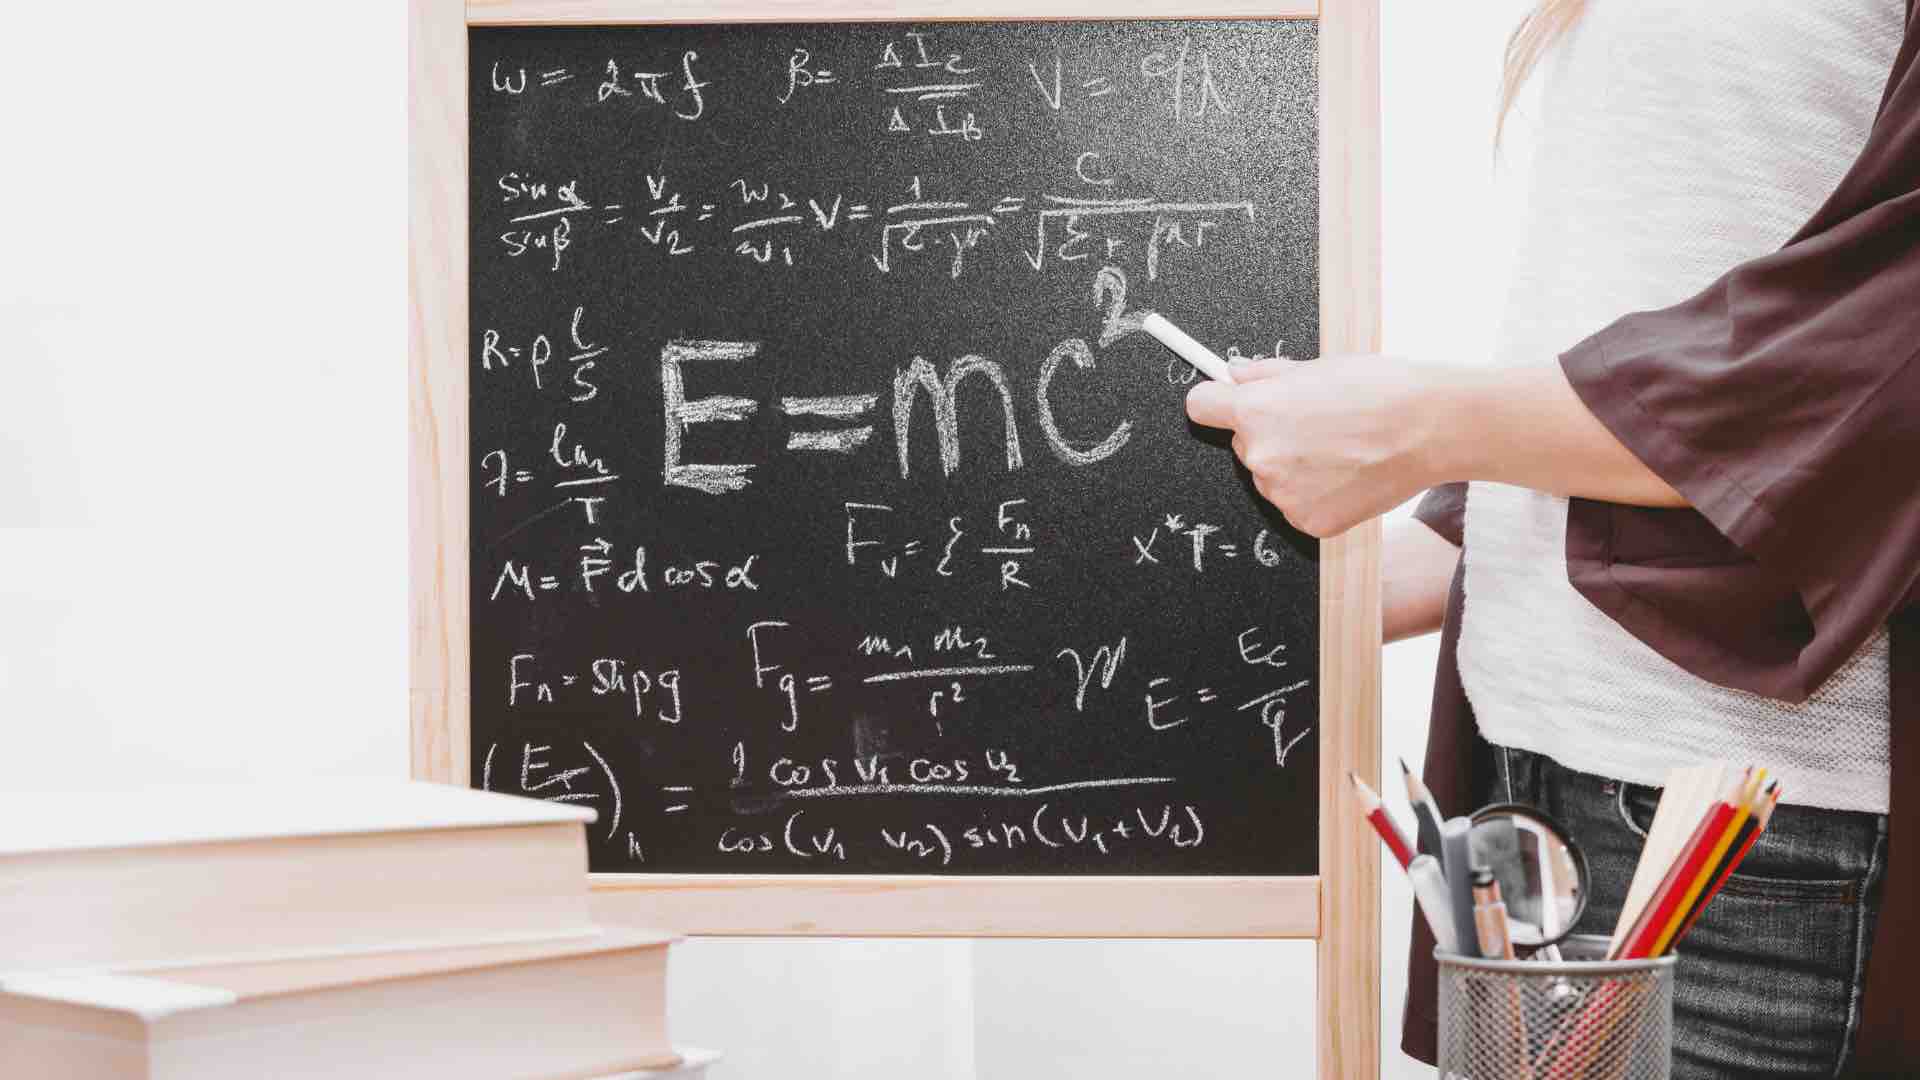 ω = 2πf β = ΔI_c / ΔI_B V = c/λ
sin α / sin β = v_1 / v_2 = w_2 / w_1 V = 1 / √(Σ · μ) = C / √(Σ_r μ_r)
R = ρ l / S
E = mc²
λ = ln_2 / T
F_v = { F_n / R
x*T = 6
M = F⃗ d cos α
F_n = Shpg F_g = m_1 m_2 / r² E = E_c / q
= 2 cos v_1 cos v_2 / cos(v_1 v_2) sin(v_1 + v_2)